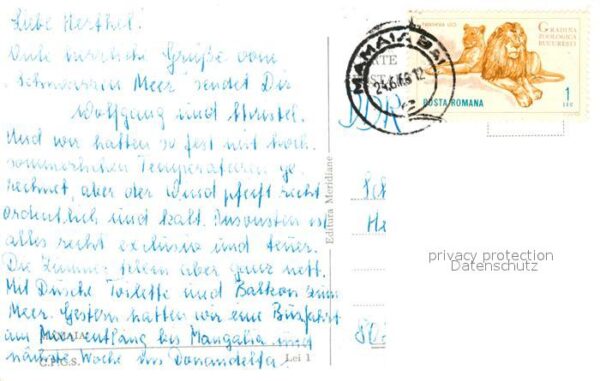 Liebe Herthel!
Viele herzliche Grüße vom
"Schwarzen Meer" sendet Dir
Wolfgang und Christel.
Und wir hatten so fest mit hoch
sommerlichen Temperaturen ge
rechnet, aber der Wind pfeift recht
ordentlich und kalt. Ansonsten ist
alles recht exclusiv und teuer.
Die Zimmer sind aber ganz nett.
Mit Dusche Toilette und Balkon zum
Meer. Gestern hatten wir eine Busfahrt
am Meer entlang bis Mangalia und
nächste Woche ins Donaudelta!
C.P.C.S. Lei 1
Editura Meridiane
MAMAIA BAI
24.6.68.12
PANTHERA LEO
GRADINA
ZOOLOGICA
BUCURESTI
POSTA ROMANA
1
LEU
DDR
privacy protection
Datenschutz